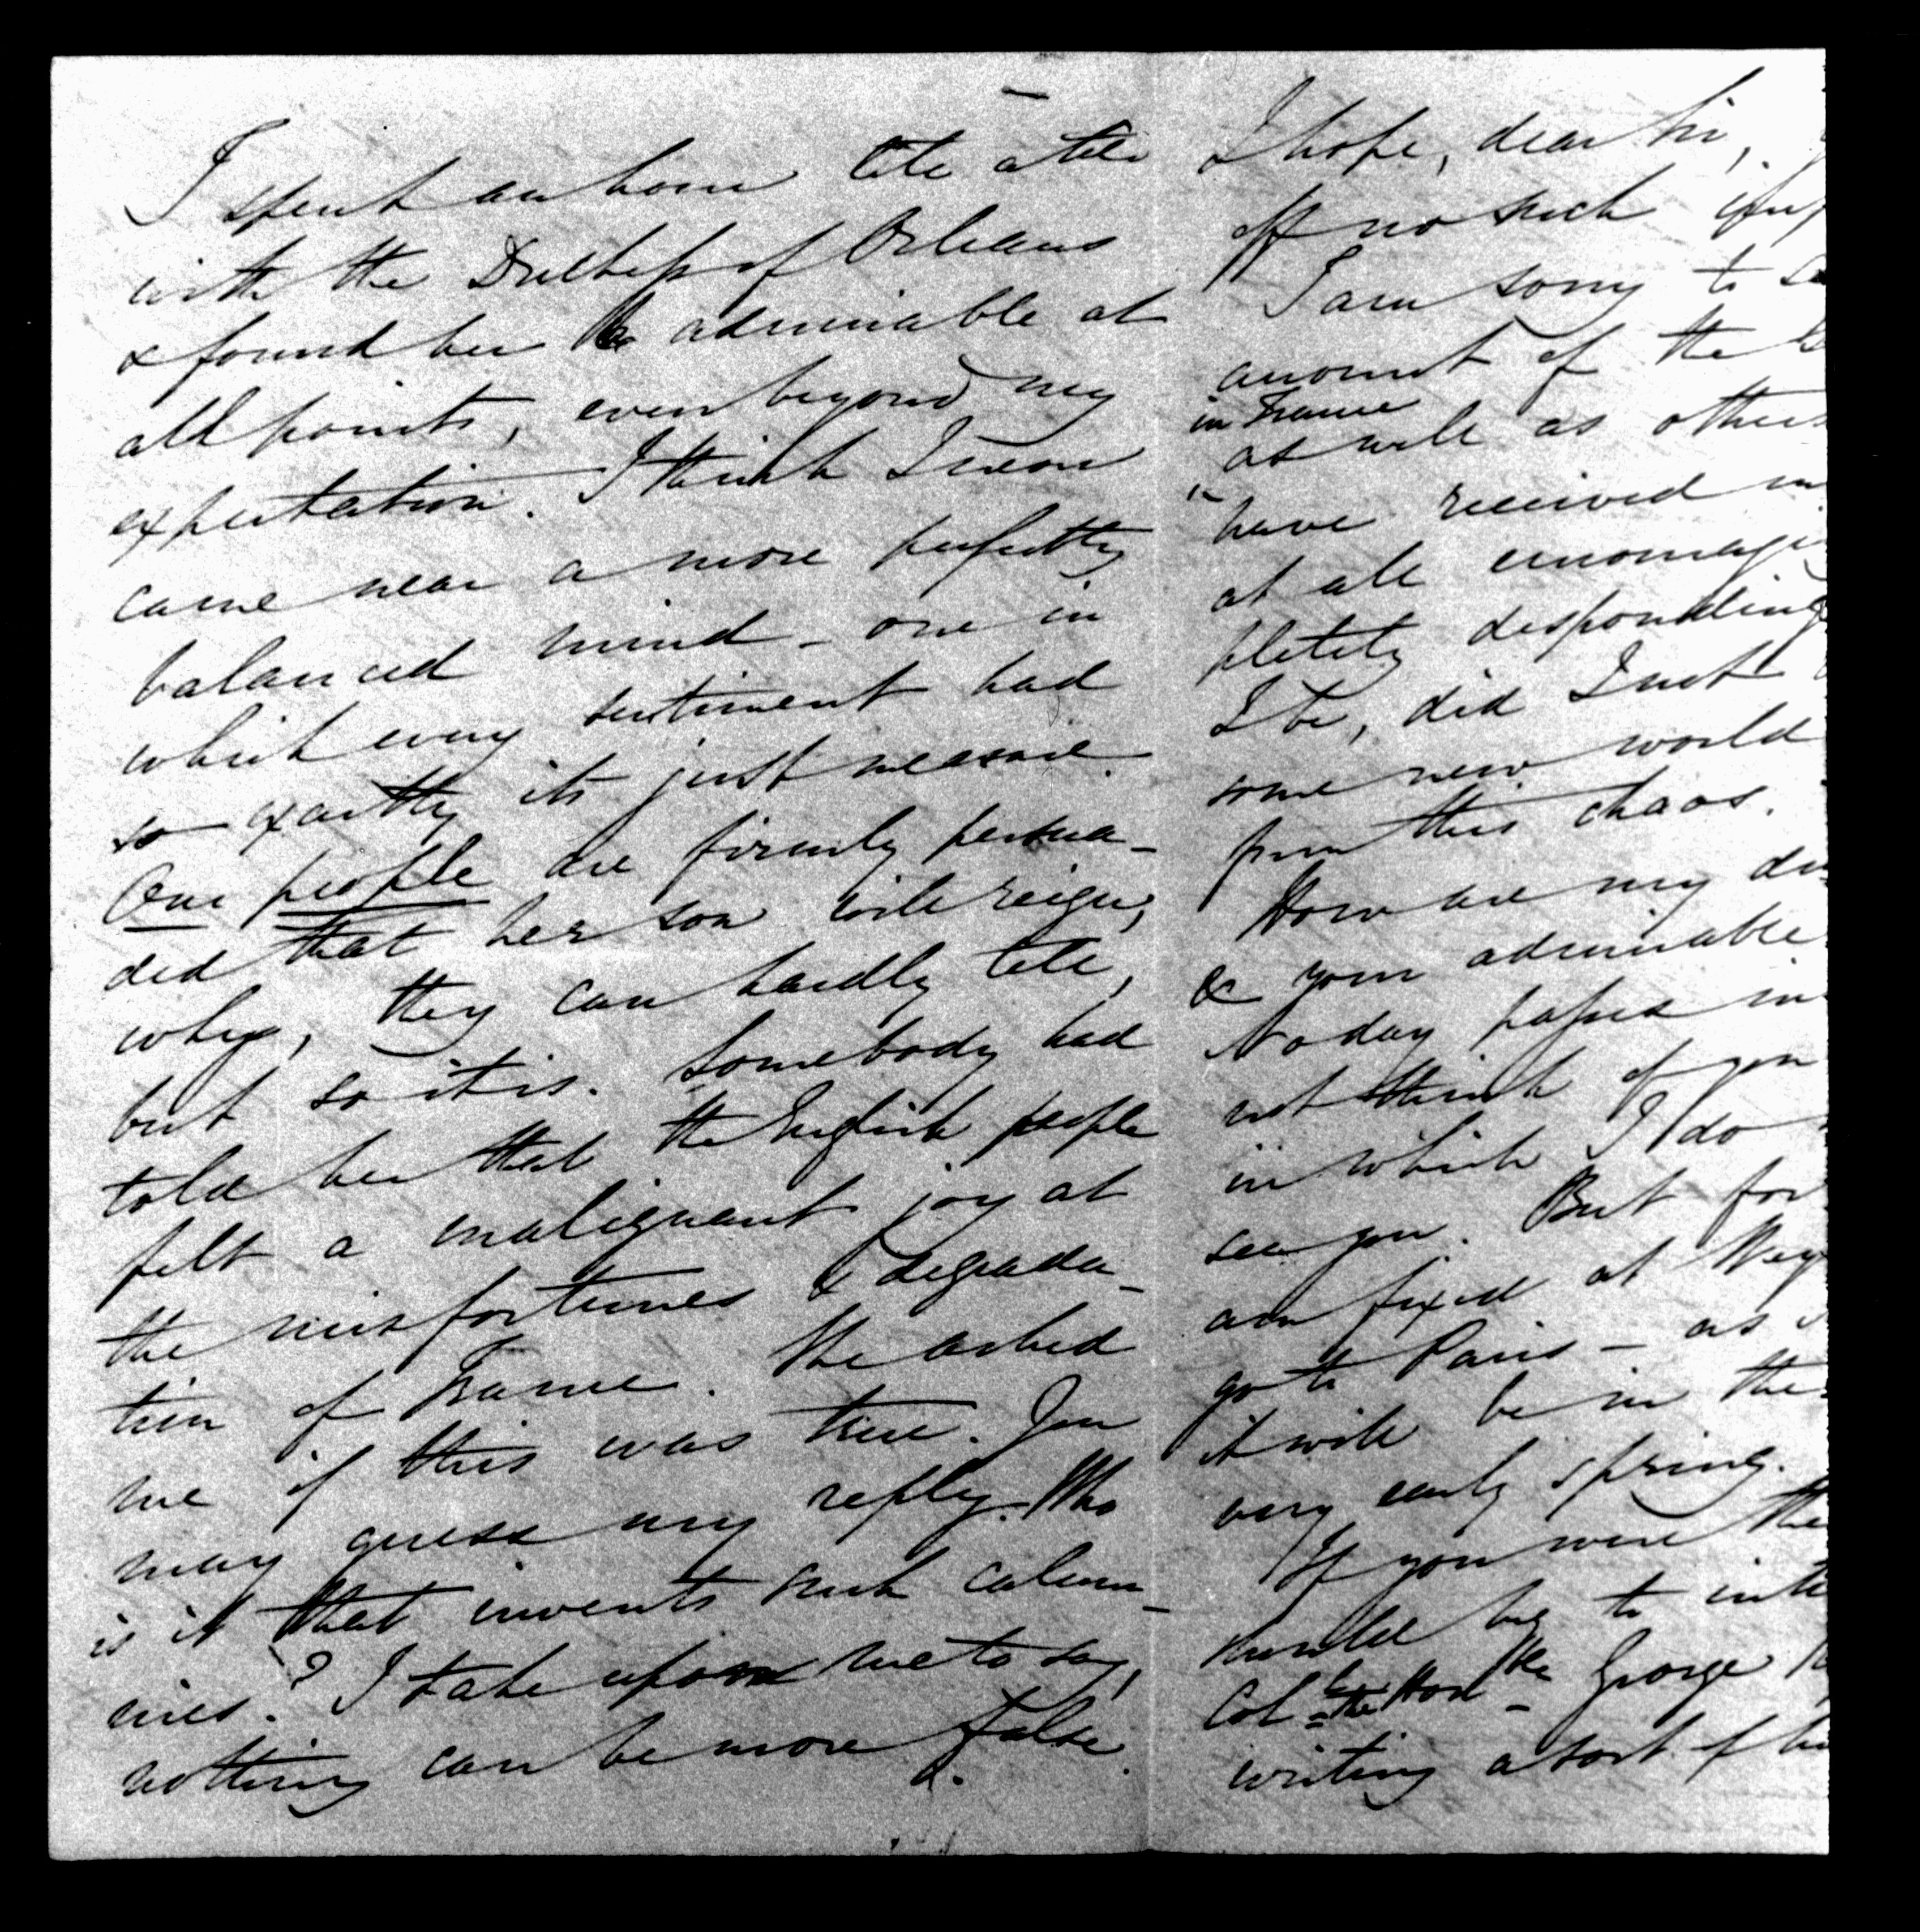 I spent an hour tete a tete
with the Duchess of Orleans
& found her admirable at
all points, even beyond my
expectation. I think I never
came near a more perfectly
balanced mind – one in
which every sentiment had
so exactly its just measure.
Our people are firmly persua–
ded that her son will reign;
why, they can hardly tell,
but so it is. Somebody had
told her that the English people
felt a malignant joy at
the misfortunes & degrada–
tion of France. She asked
me if this was true. You
may guess my reply. Who
is it that invents such calum–
nies? I take upon me to say,
nothing can be more false.
I hope, dear Sir,
of no such
I am sorry to
amount of the
in France
as well as others
have received
at all
pletely desponding
I be, did I not
some new world
from this chaos.
How are my
& your admirable
No day passes in
not think of you
in which I do
see you. But for
am fixed at Wey
go to Paris – as
it will be in the
very early spring.
If you were
would beg to
Col the Hon George
writing a sort of